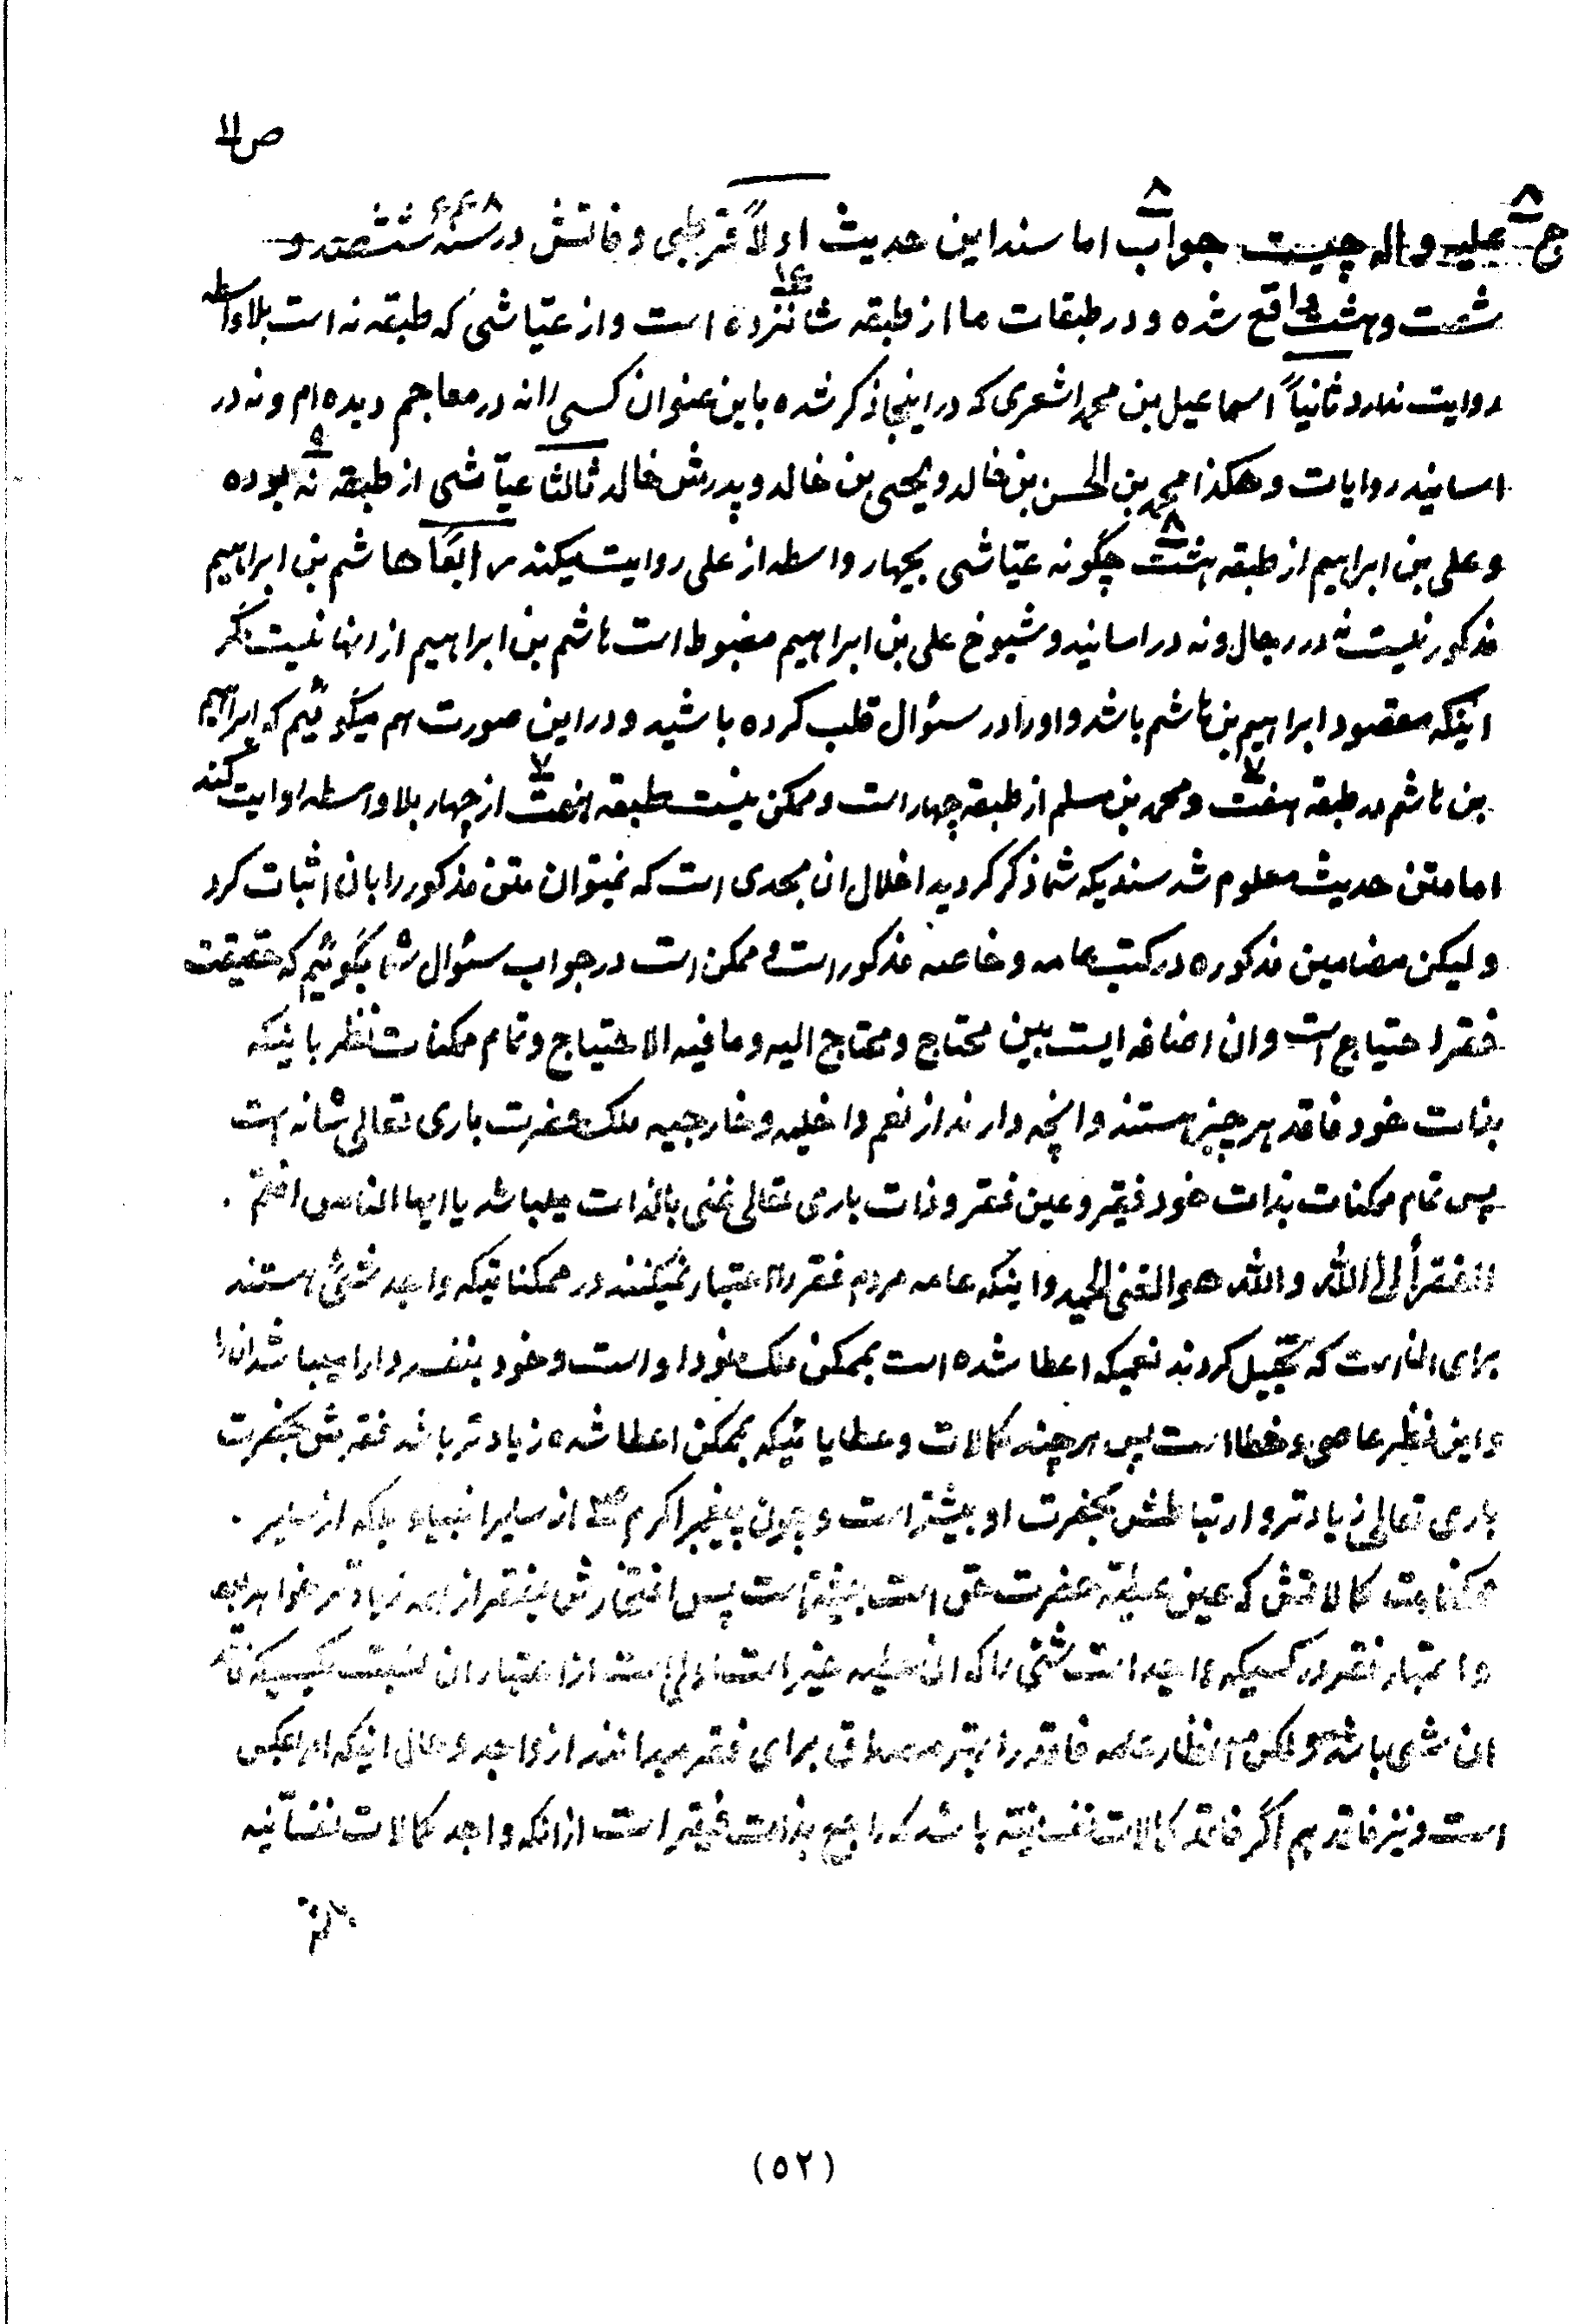 ص ۱۱
ج ۸ علیه و اله چیست جواب ۸ اما سند این حدیث اولاً قرطبی وفاتش در سنه ۶۶۸ ششصد و
شصت و هشت واقع شده و در طبقات ما از طبقه شانزده ۱۶ است و از عیّاشی که طبقه نه است بلاواسطه
روایت ندارد ثانیاً اسماعیل بن محمد اشعری که در اینجا ذکر شده باین عنوان کسی را نه در معاجم دیده ام و نه در
اسانید روایات و هکذا محمد بن الحسن بن خالد و یحیی بن خالد و پدرش خالد ثالثا عیّاشی از طبقه نه ۹ بوده
و علی بن ابراهیم از طبقه هشت ۸ چگونه عیّاشی بچهار واسطه از علی روایت میکند رابعاً هاشم بن ابراهیم
مذکور نیست نه در رجال و نه در اسانید و شیوخ علی بن ابراهیم مضبوط است هاشم بن ابراهیم از انها نیست مگر
اینکه مقصود ابراهیم بن هاشم باشد و او را در سئوال قلب کرده باشید و در این صورت هم میگوئیم که ابراهیم
بن هاشم در طبقه هفت ۷ و محمد بن مسلم از طبقه چهار است و ممکن نیست طبقه هفت ۷ از چهار بلاواسطه روایت کند
اما متن حدیث معلوم شد سندیکه شما ذکر کردید اخلال ان بحدی است که نمیتوان متن مذکور را بان اثبات کرد
و لیکن مضامین مذکوره در کتب عامه و خاصه مذکور است و ممکن است در جواب سئوال شما بگوئیم که حقیقت
فقر احتیاج است و ان اضافه ایست بین محتاج و محتاج الیه و ما فیه الاحتیاج و تمام ممکنات نظر باینکه
بذات خود فاقد هر چیز هستند و انچه دارند از نعم داخلیه و خارجیه ملک حضرت باری تعالی شانه است
پس تمام ممکنات بذات خود فقیر و عین فقر و ذات باری تعالی غنی بالذات میباشد یا ایها الناس انتم .
الفقرأ الی الله والله هو الغنی الحمید و اینکه عامه مردم فقر را اعتبار نمیکنند در ممکناتیکه واجد شیئی هستند
برای انست که تخییل کردند نعمیکه اعطا شده است بممکن ملک خود او است و خود بنفسه دارا میباشد انرا
و این نظر عامی و خطا است پس هر چند کمالات و عطایائیکه بممکن اعطا شده زیادتر باشد فقرش بحضرت
باری تعالی زیادتر و ارتباطش بحضرت او بیشتر است و چون پیغمبر اکرم ص از سایر انبیاء بلکه از سایر .
ممکنات کمالاتش که عین عطیه حضرت حق است بیشتر است پس افتخارش بفقر از همه زیادتر خواهد بود
و اعتبار فقر در کسیکه واجد است شیئی را که ان عطیه غیر است اولی است از اعتبار ان نسبت بکسیکه فاقد
ان شیی باشد ولکن انظار عامه فاقد را بهتر مصداق برای فقر میدانند از واجد و حال اینکه امر بعکس
است و نیز فاقد هم اگر فاقد کمالات نفسانیّه باشد که راجع بذات فقیر است از انکه واجد کمالات نفسانیه
(۵۲)